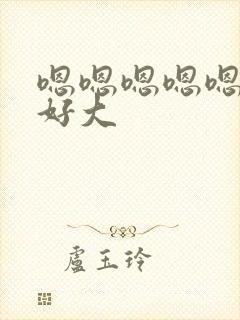 嗯嗯嗯嗯嗯
好大
盧玉玲